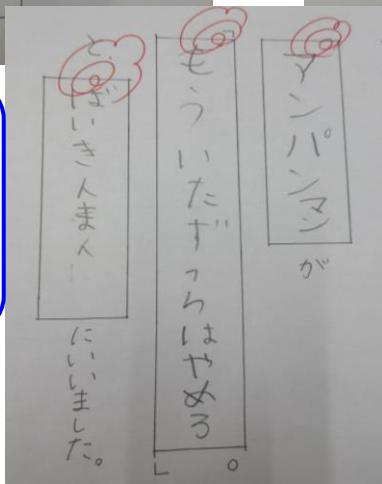 アンパンマンが
「もういたずらはやめろ。」
とばいきんまんにいいました。